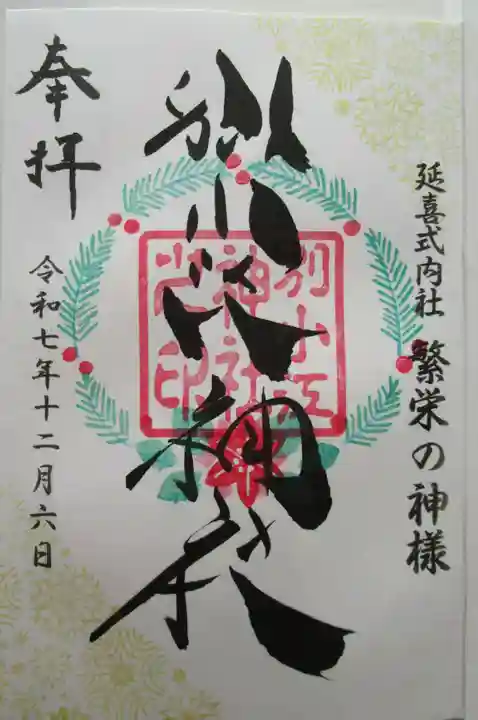 延喜式内社 繁栄の神様
別小江神社
別小江
神社
之印
奉拝
令和七年十二月六日